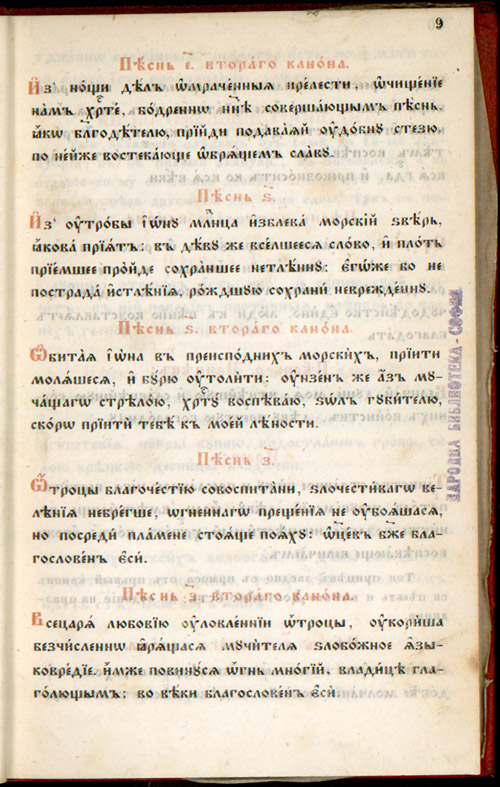 9
Пѣ́снь є҃. вторáгѡ канóна.
И҆з̾ но́щи дѣ́лъ ѡ҆мраче́нныѧ пре́лести, ѡ҆чище́нїе
на́мъ хрⷭ҇те́, бо́дреннѡ ны́нѣ соверша́ющымъ пѣ́снь,
ꙗ҆́кѡ бл҃годѣ́телю, прїиди̂ подава́ѧй ᲂу҆до́бнꙋ стезю̀,
по не́йже востека́юще ѡ҆брѧ́щемъ сла́вꙋ.
Пѣ́снь ѕ҃.
И҆з̾ ᲂу҆тро́бы і҆ѡ́нꙋ млⷣнца и҆зблева̀ морскі́й ѕвѣ́рь,
ꙗ҆кова̀ прїѧ́тъ: въ дѣ́вꙋ же всельшеесѧ сло́во, и҆ пло́ть
прїе́мшее про́йде сохра́ншее нетлѣ́ннꙋ: є҆гѡ́же бо не
пострада̀ и҆стлѣ́нїѧ, ро́ждшꙋю сохранѝ невреждéннꙋ.
Пѣ́снь ѕ҃. вторáгѡ канóна.
Ѡ҆бита́ѧ і҆ѡ́на въ преиспо́днихъ морски́хъ, прїити̂
молѧ́шесѧ, и҆ бꙋ́рю ᲂу҆толи́ти: ᲂу҆ѧ́звенъ же а҆́зъ мꙋ-
ча́щагѡ стрѣло́ю, хрⷭ҇та̀ воспѣва́ю, ѕѡ́лъ гꙋби́телю,
ско́рѡ прїитѝ тебѣ̀ къ мое́й лѣ́ности.
Пѣ́снь з҃.
Ѻ҆́троцы благоче́стїю совоспита́ни, ѕлочести́вагѡ ве-
лѣ́нїѧ небре́гше, ѻ҆́гненнагѡ преще́нїѧ не ᲂу҆боѧ́шасѧ,
но посредѝ пла́мене стоѧ́ще поѧ́хꙋ: ѻ҆тцє́въ бж҃е бла-
гослове́нъ є҆сѝ.
Пѣ́снь з҃. вторáгѡ канóна.
Всецарѧ̀ любо́вїю ᲂу҆ловле́ннїи ѻ҆́троцы, ᲂу҆кори́ша
безчи́сленнѡ ꙗ҆рѧ́щасѧ мꙋчи́телѧ ѕлобо́жное ѧ҆зы-
ковре́дїе: и҆̀мже повинꙋ́сѧ ѻ҆́гнь мно́гїй, влады́цѣ гла-
го́лющымъ: во вѣ́ки благослове́нъ є҆сѝ.
НАРОДНА БИБЛИОТЕКА - СОФИЯ